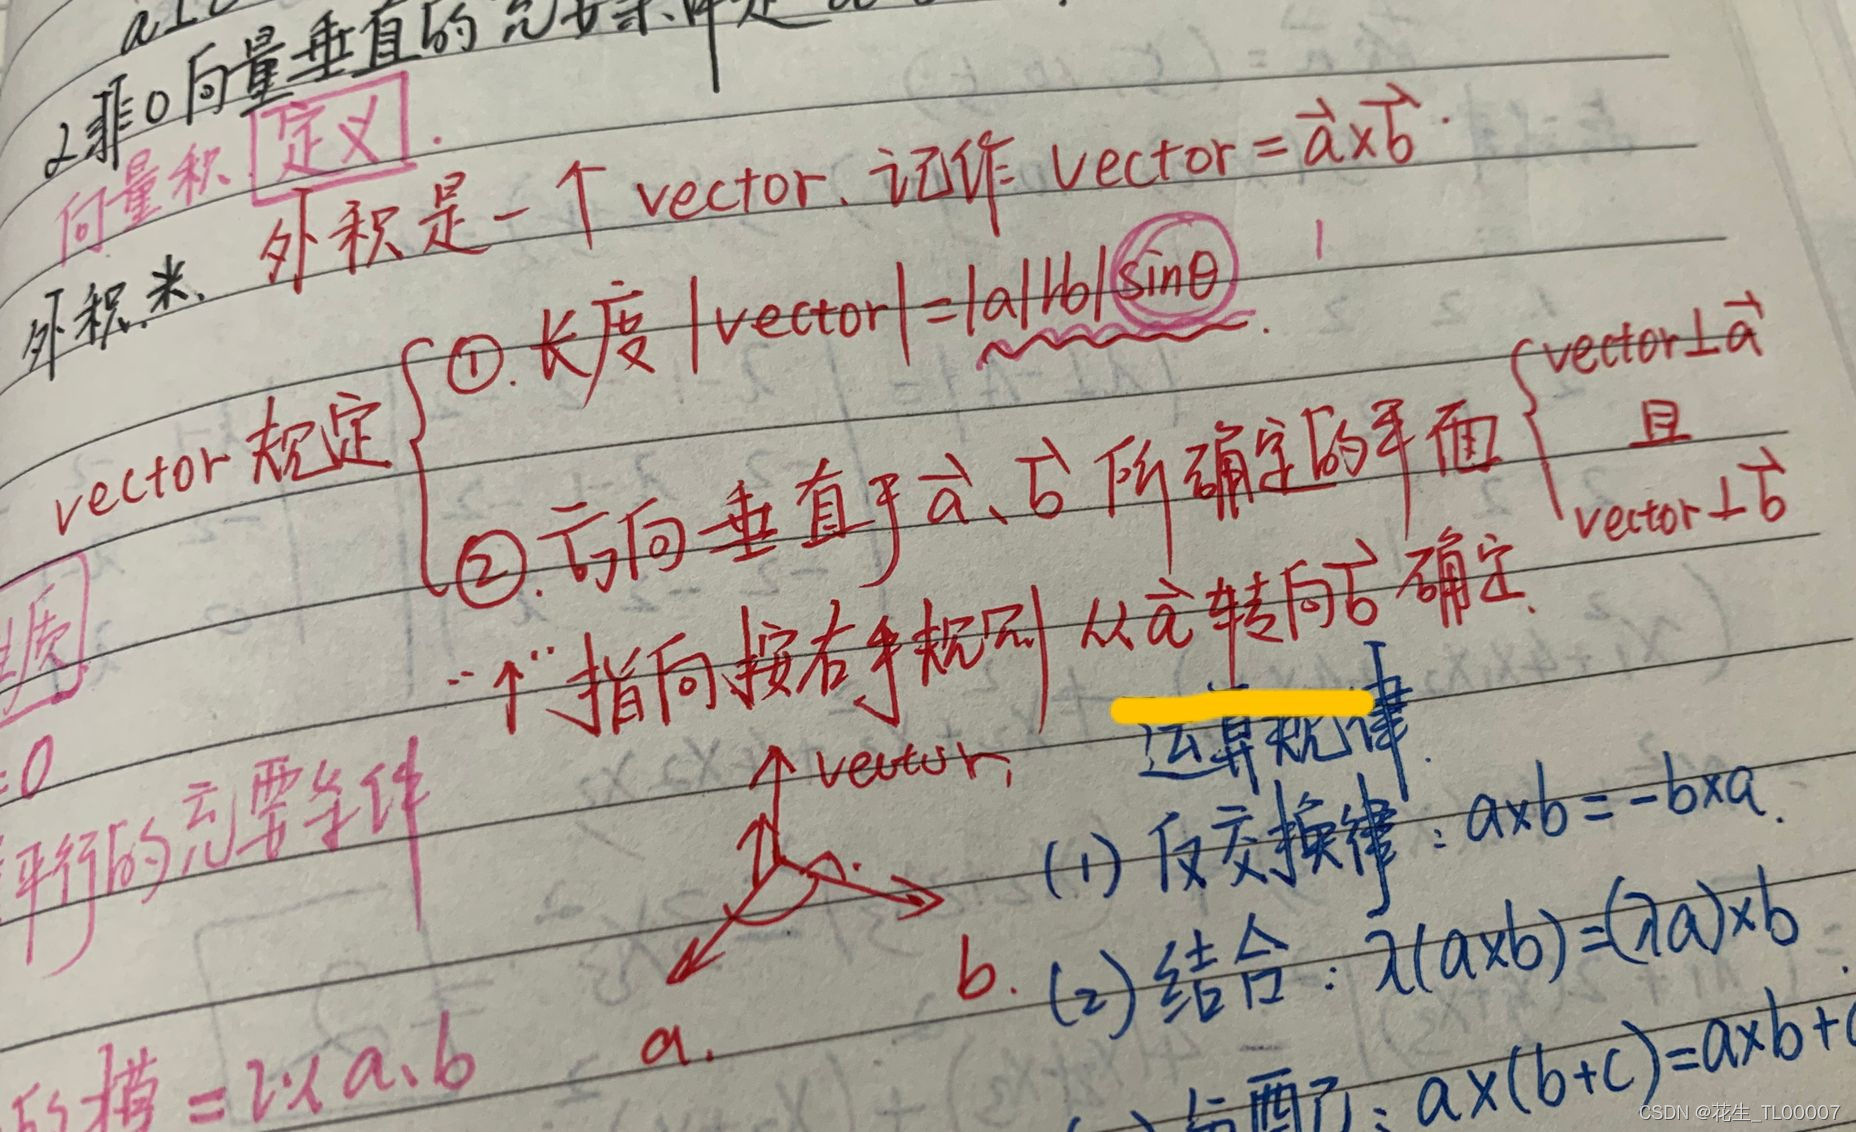 2非0向量垂直的充要条件是
向量积 定义.
外积是一个vector、记作 vector = a⃗×b⃗.
外积.米、
vector规定
①.长度 |vector| = |a||b|sinθ.
②.方向垂直于a⃗、b⃗所确定的平面
vector⊥a⃗
且
vector⊥b⃗
"↑"指向按右手规则从a⃗转向b⃗确定.
vector,
b.
a.
运算规律.
(1)反交换律：a×b=-b×a.
(2)结合：λ(a×b)=(λa)×b
分配：a×(b+c)=a×b+
=0
平行的充要条件
的模=以a、b
CSDN @花生_TL00007